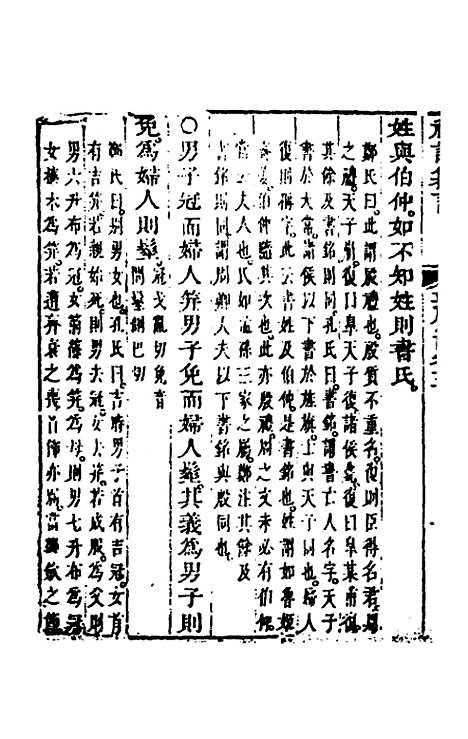 姓與伯仲如不知姓則書氏
鄭氏曰此謂殷禮也殷質不重名復則臣得名君周
之禮天子崩復曰皐天子復諸侯薨復曰皐某甫復
其餘及書銘則同孔氏曰書銘謂書亡人名字天子
書於大常諸侯以下書於旌旗士與天子同也婦人
復則稱字此云書姓及伯仲是書銘也姓謂如魯姬
齊姜伯仲隨其次此亦殷禮周之文未必有伯仲
當云夫人也氏如孟孫三家之屬鄭注其餘及
書銘則同謂周卿大夫以下書銘與殷同也
○男子冠而婦人笄男子免而婦人髽其義為男子則
免為婦人則髽冠戈亂切免音問髽側巴切
鄭氏曰別男女也孔氏曰吉時男子首有吉冠女首
有吉笄若親始死則男去冠女去笄若成服為父則
男六升布為冠女箭篠為笄為母則男七升布為冠
女榛木為笄若遭齊衰之喪首飾亦別當襲斂之